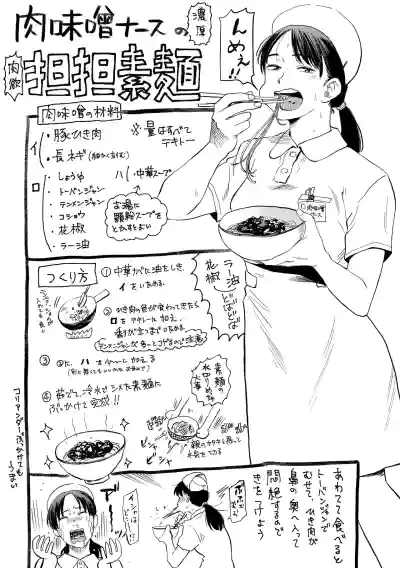 肉味噌ナースの
濃厚
肉飯
担担素麺
んめぇ!!
肉味噌の材料
イ
・豚ひき肉
・長ネギ
※量はすべて
テキトー
ロ
・しょうゆ
・トーバンジャン
・テンメンジャン
・コショウ
・花椒
・ラー油
ハ
中華スープ
お湯に
顆粒スープを
とかすとよい
肉味噌
ナース
つくり方
① 中華なべに油をしき、
イをいためる。
② ひき肉の色が変わってきたら
ロをテキトーに加え、
香りが立つまでいためる。
③ ②に、ハを
加える
④ 茹でて、冷水でシメた素麺に
ぶっかけて完成!!
ラー油
花椒
どばどば
素麺の
水切りめちゃ
大事
親のカタキと思って
水気を切る
ビシャ
コリアンダーぶっかけても
うまい
あわてて食べると
トーバンジャンで
むせて、ひき肉が
鼻の奥へ入って
悶絶するので
きをつけよう